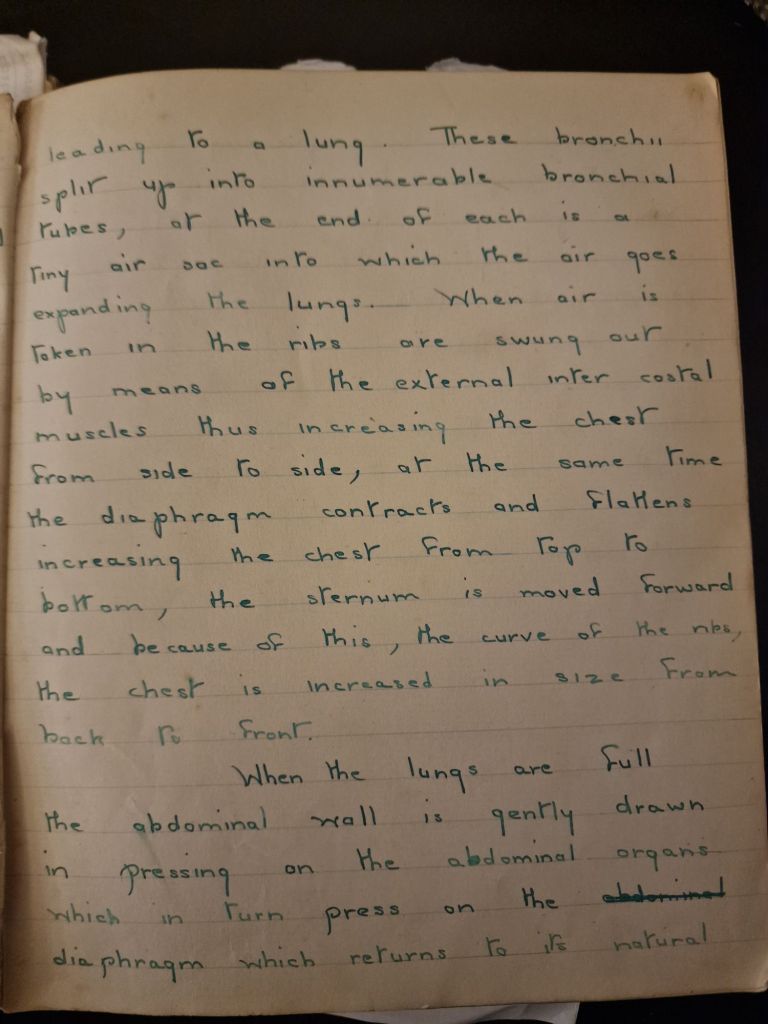 leading to a lung. These bronchii
split up into innumerable bronchial
tubes, at the end of each is a
tiny air sac into which the air goes
expanding the lungs. When air is
taken in the ribs are swung out
by means of the external inter costal
muscles thus increasing the chest
from side to side, at the same time
the diaphragm contracts and flattens
increasing the chest from top to
bottom, the sternum is moved forward
and because of this, the curve of the ribs,
the chest is increased in size from
back to front.
When the lungs are full
the abdominal wall is gently drawn
in pressing on the abdominal organs
which in turn press on the abdominal
diaphragm which returns to its natural